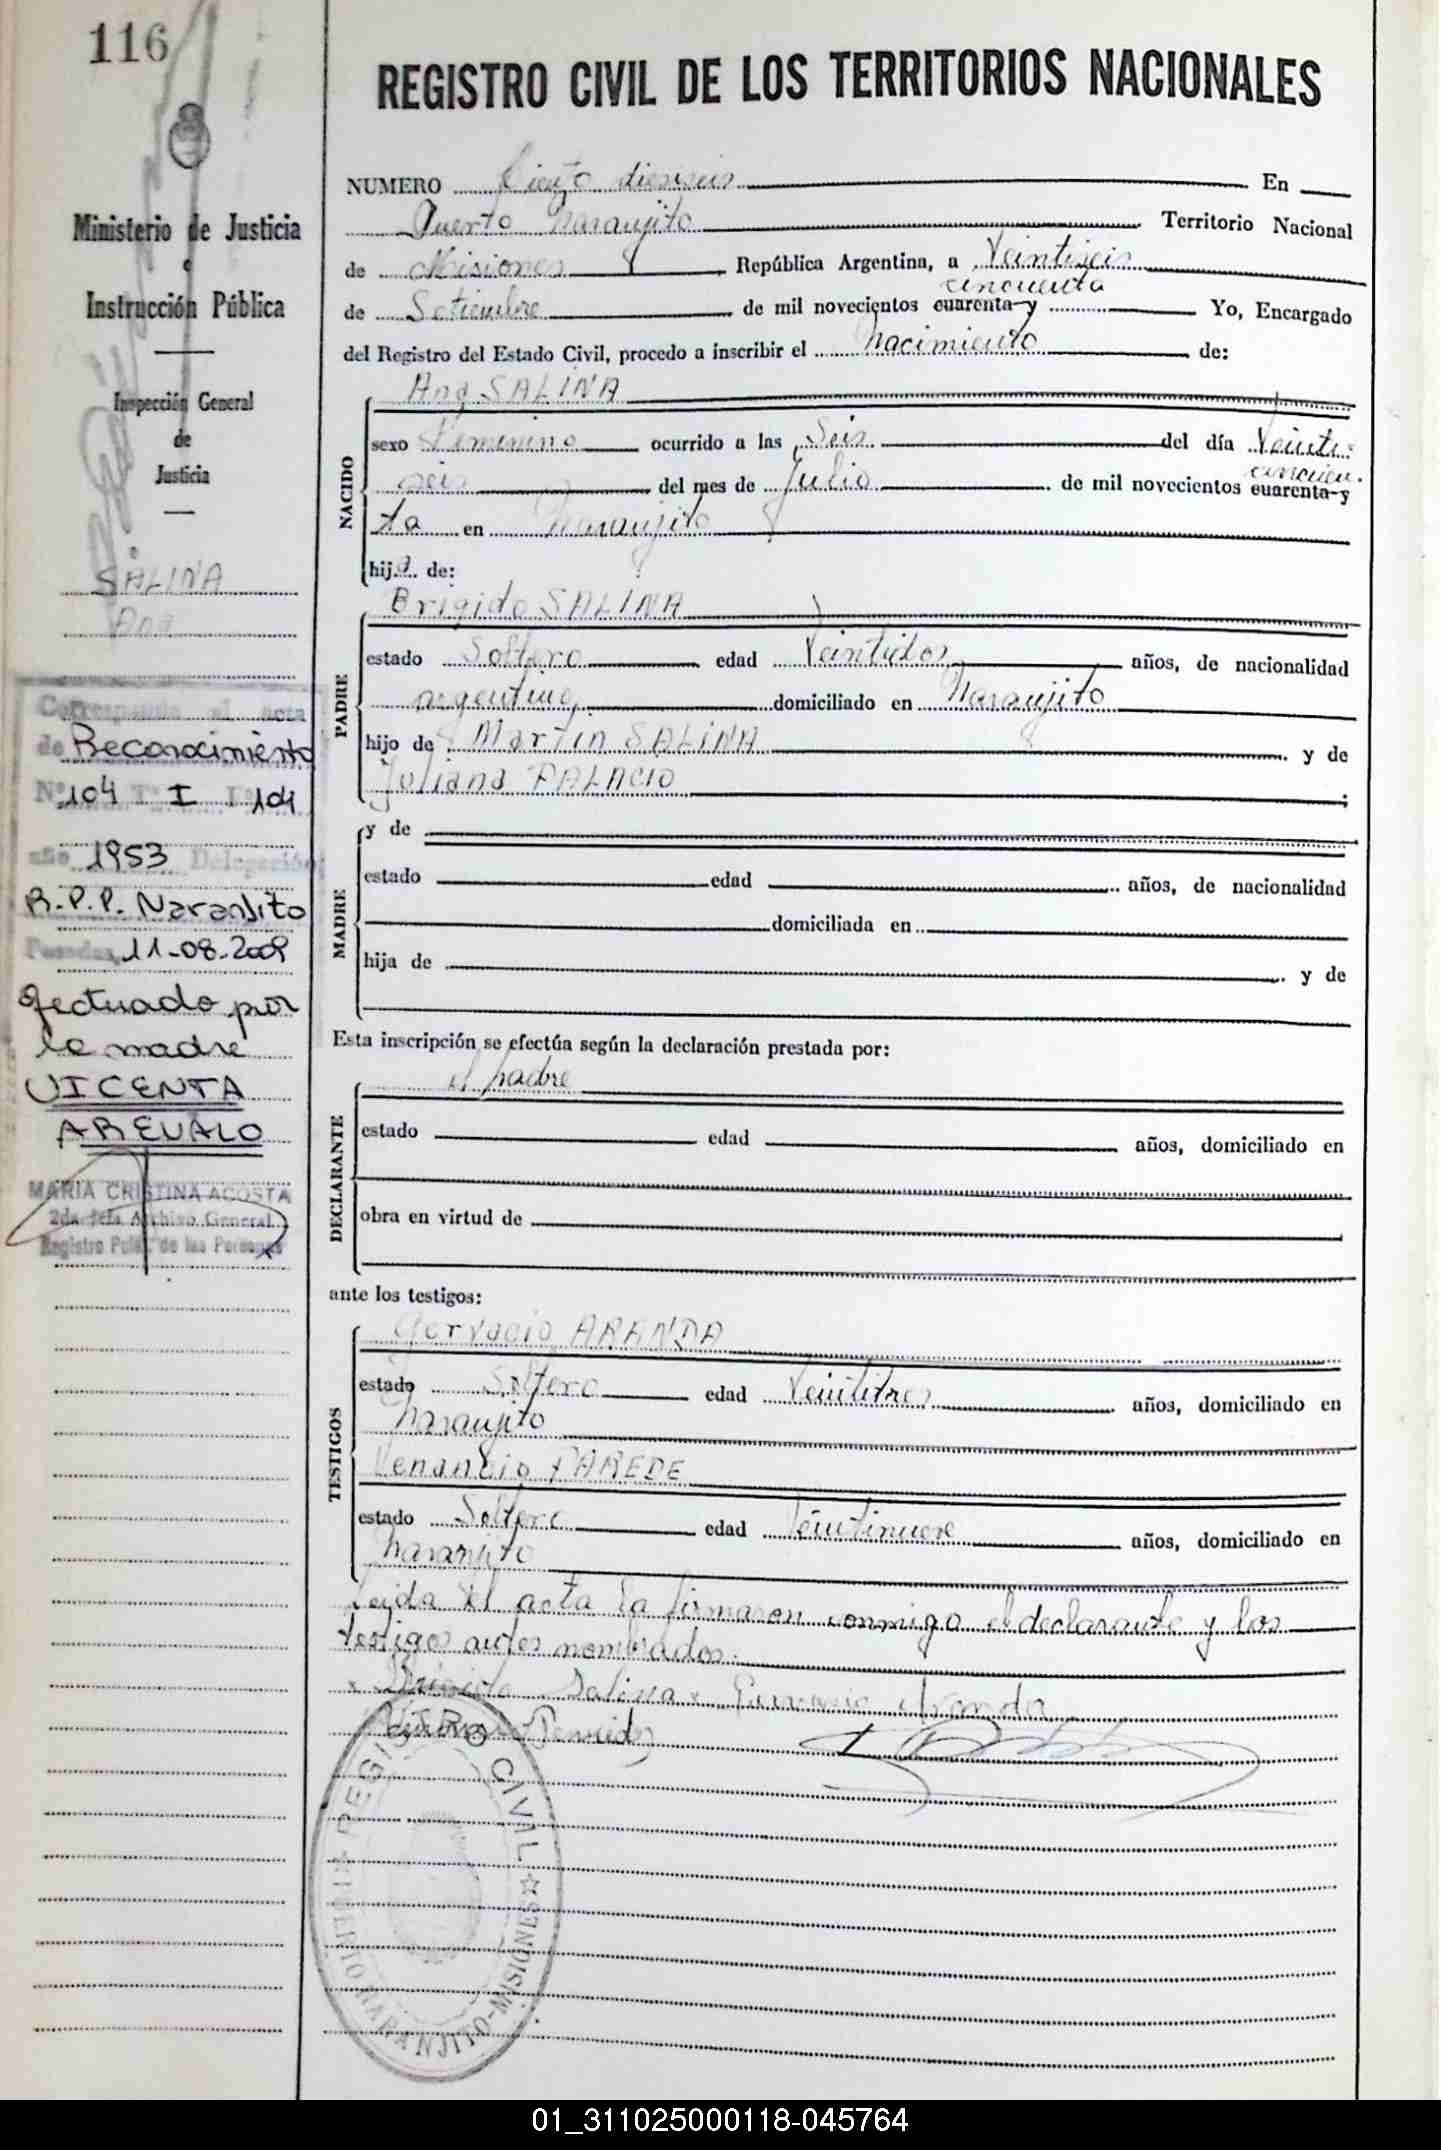 116
REGISTRO CIVIL DE LOS TERRITORIOS NACIONALES
Ministerio de Justicia
e
Instrucción Pública
Inspección General
de
Justicia
SALINA
Ana
Corresponde al acta
de Reconocimiento
Nº 104 Tº I Fº 104
año 1953 Delegación
R.P.P. Naranjito
Posadas, 11-08-2009
efectuado por
la madre
VICENTA
AREVALO
MARIA CRISTINA ACOSTA
2da Jefa Archivo General
Registro Pcial. de las Personas
NUMERO Ciento dieciseis En
Puerto Naranjito Territorio Nacional
de Misiones República Argentina, a Veintiseis
cincuenta
de Setiembre de mil novecientos cuarenta y Yo, Encargado
del Registro del Estado Civil, procedo a inscribir el Nacimiento de:
NACIDO
Ana SALINA
sexo Femenino ocurrido a las Seis del día Veinti-
cincuen-
seis del mes de Julio de mil novecientos cuarenta y
ta en Naranjito
hija de:
PADRE
Brigido SALINA
estado Soltero edad Veintidos años, de nacionalidad
argentina domiciliado en Naranjito
hijo de Martin SALINA y de
Juliana PALACIO ;
MADRE
y de
estado edad años, de nacionalidad
domiciliada en
hija de y de
Esta inscripción se efectúa según la declaración prestada por:
DECLARANTE
el padre
estado edad años, domiciliado en
obra en virtud de
ante los testigos:
TESTIGOS
Gervacio ARANDA
estado Soltero edad Veintitres años, domiciliado en
Naranjito
Venancio PAREDE
estado Soltero edad Veintinueve años, domiciliado en
Naranjito
Leida el acta la firmaron conmigo el declarante y los
testigos antes nombrados.
Brigido Salina Aranda
REGISTRO CIVIL
NARANJITO-MISIONES
01_311025000118-045764